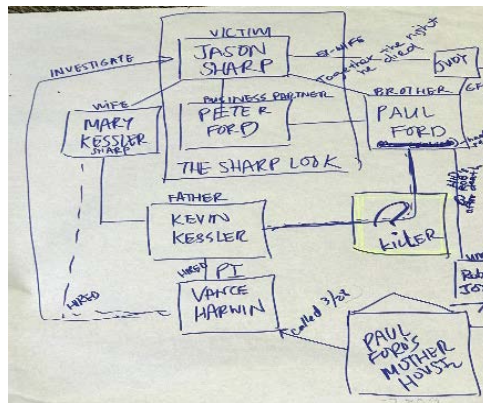 VICTIM
JASON
SHARP
EX-WIFE
Together the night
he died
JUDY
INVESTIGATE
WIFE
MARY
KESSLER
SHARP
BUSINESS PARTNER
PETER
FORD
BROTHER
PAUL
FORD
THE SHARP LOOK
FATHER
KEVIN
KESSLER
KILLER
HIRED
PI
VANCE
HARWIN
HIRED
called 3/22
PAUL
FORD'S
MOTHER
HOUSE